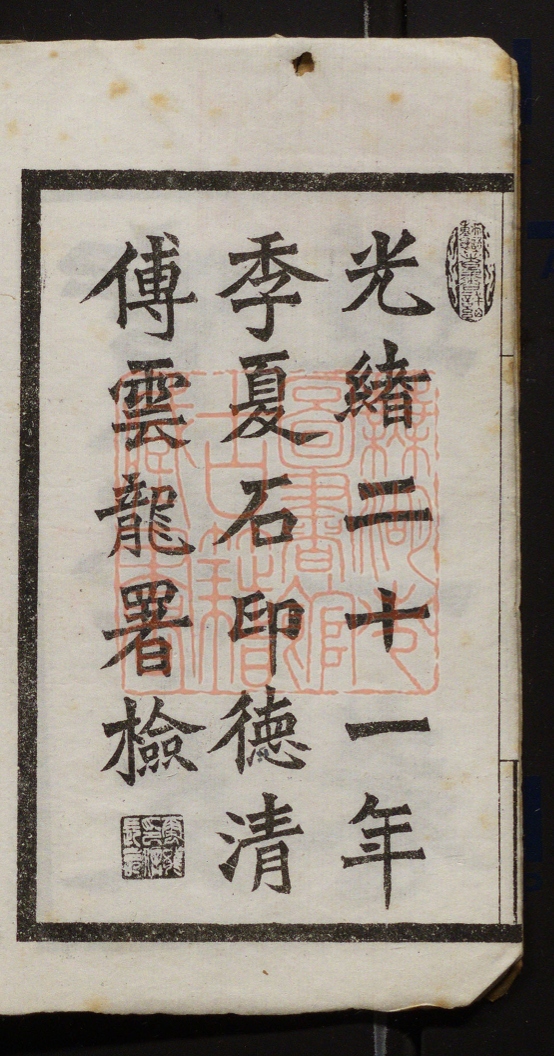 光緒二十一年
季夏石印德清
傅雲龍署檢